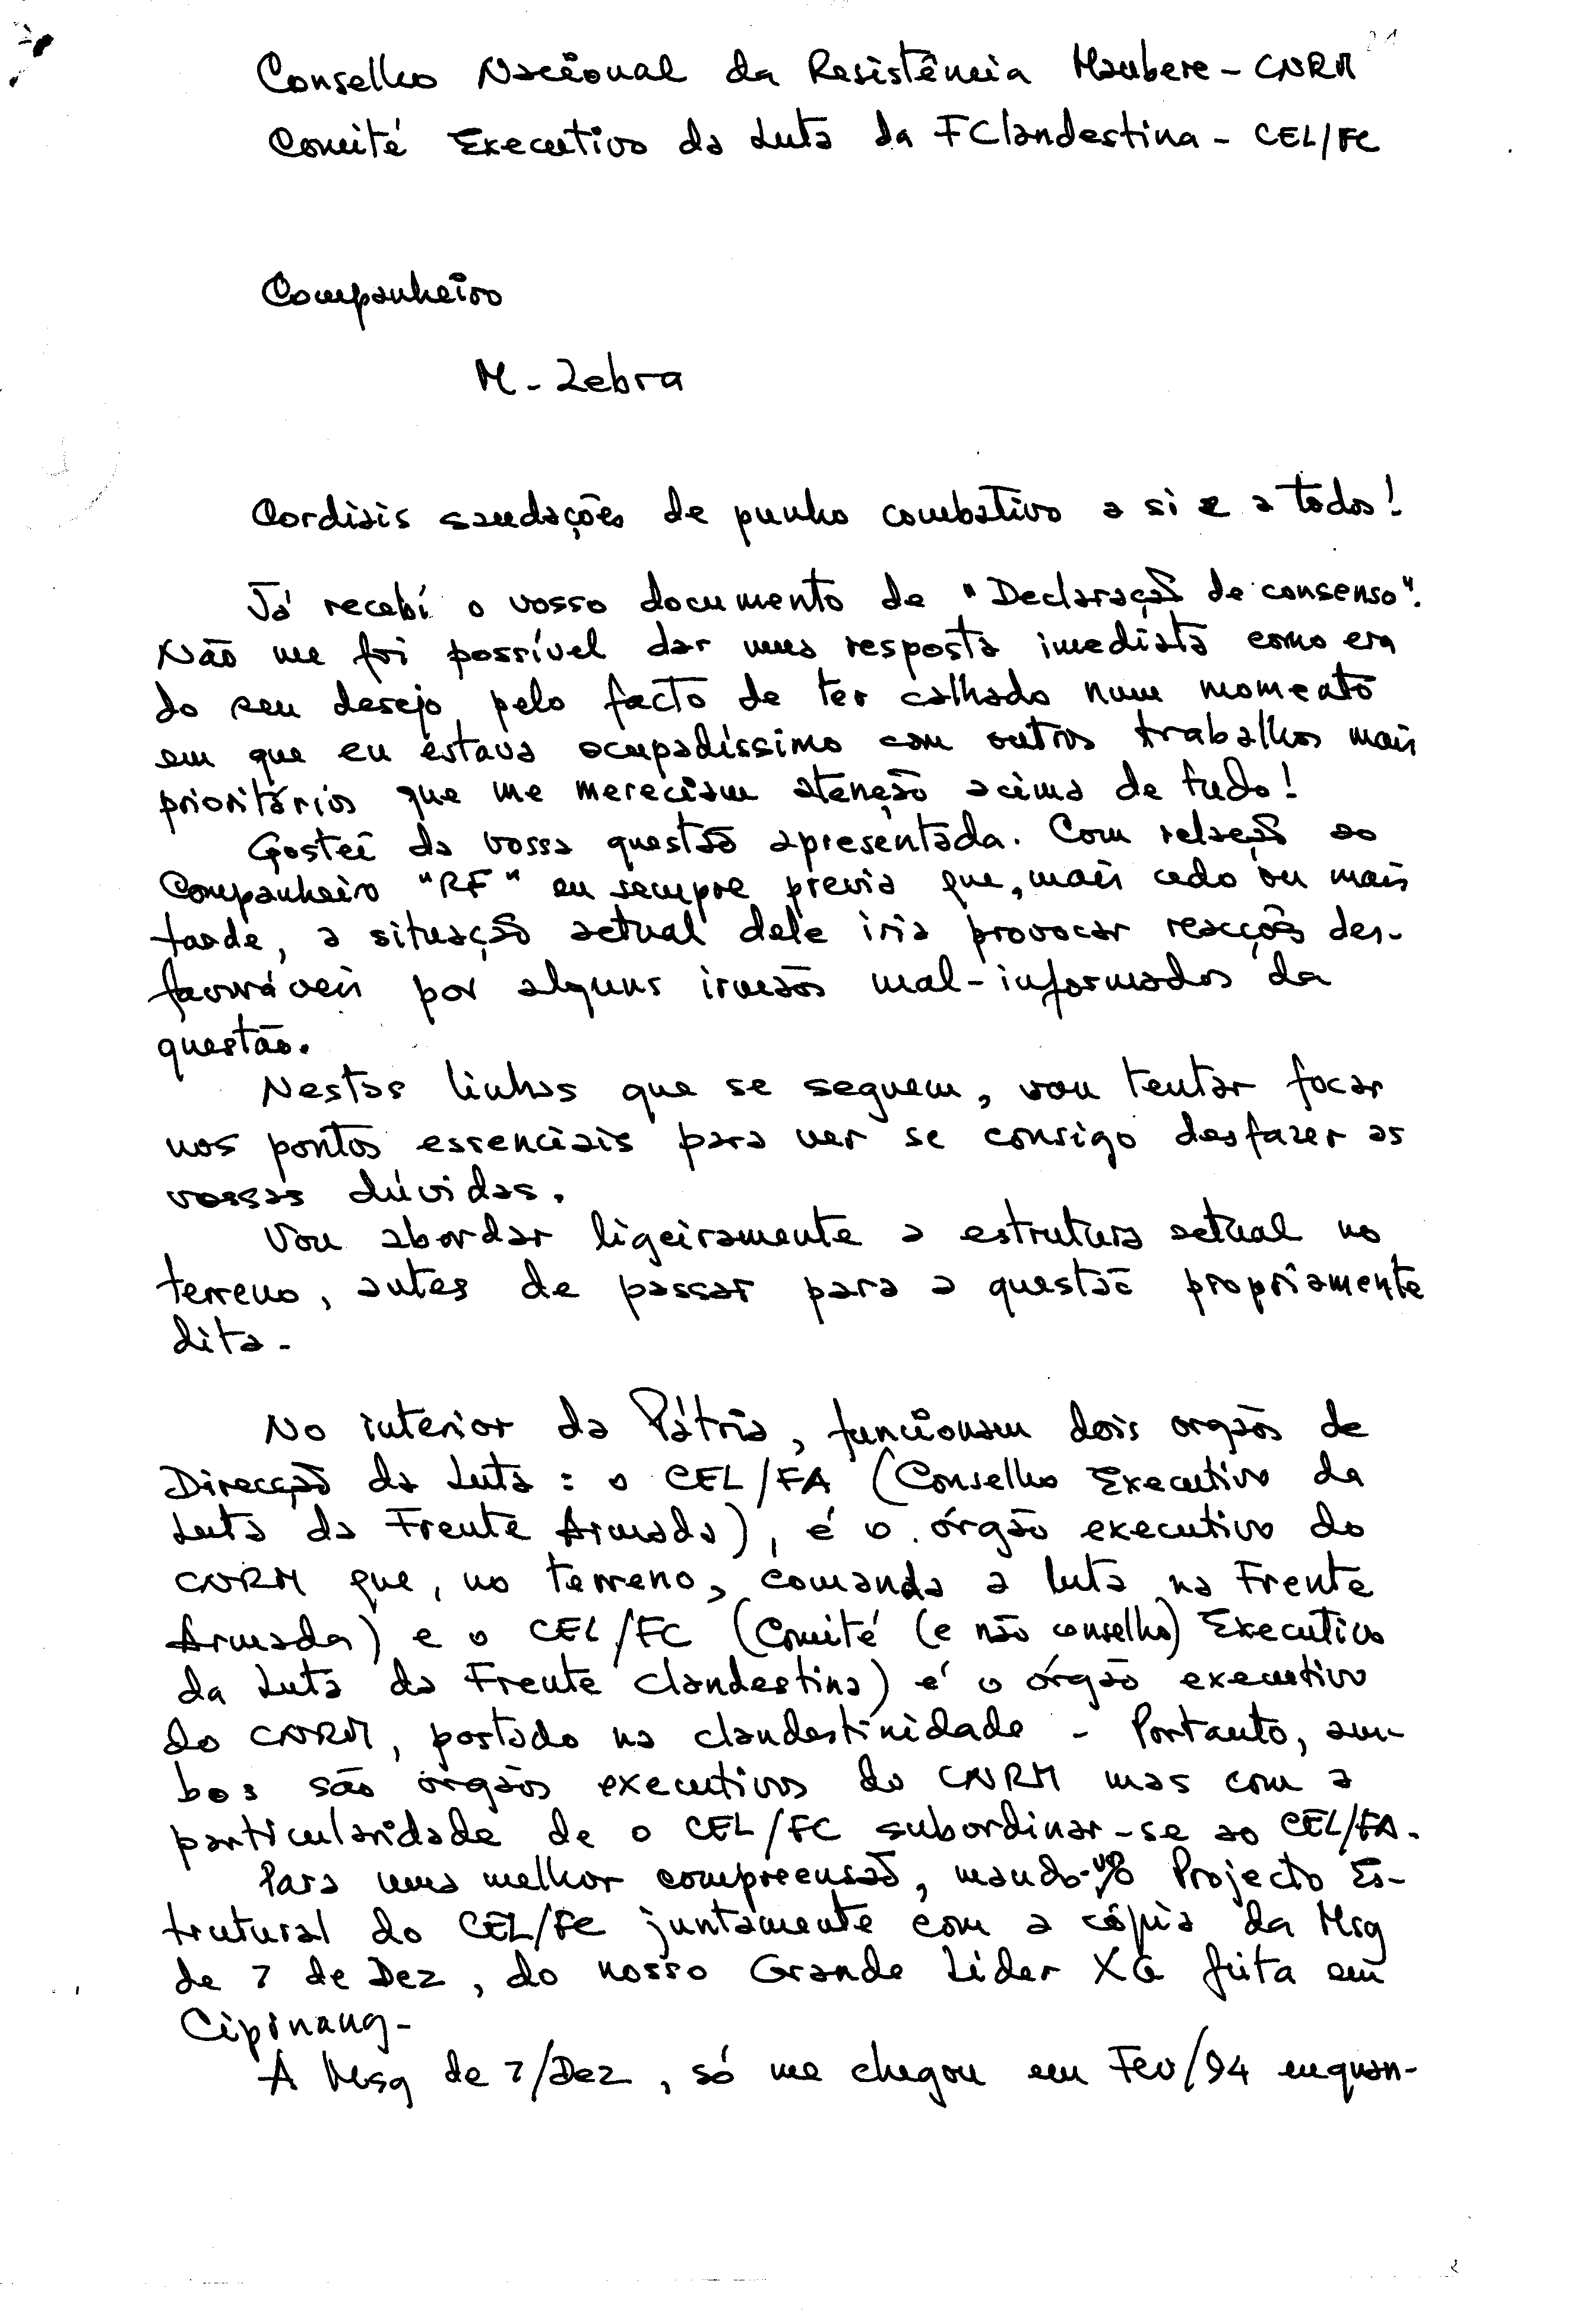 Conselho Nacional da Resistência Maubere - CNRM
Comité Executivo da Luta da FClandestina - CEL/FC
Companheiro
M - Zebra
Cordiais saudações de punho combativo a si e a todos!
Já recebí o vosso documento de "Declaração de consenso".
Não me foi possível dar uma resposta imediata como era
do seu desejo, pelo facto de ter calhado num momento
em que eu estava ocupadíssimo com outros trabalhos mais
prioritários que me mereciam atenção acima de tudo!
Gostei da vossa questão apresentada. Com relação ao
Companheiro "RF" eu sempre previa que, mais cedo ou mais
tarde, a situação actual dele iria provocar reacções des-
favoráveis por alguns irmãos mal-informados da
questão.
Nestas linhas que se seguem, vou tentar focar
nos pontos essenciais para ver se consigo desfazer as
vossas dúvidas.
Vou abordar ligeiramente a estrutura actual no
terreno, antes de passar para a questão propriamente
dita -
No interior da Pátria, funcionam dois orgãos de
Direcção da Luta : o CEL/FA (Conselho Executivo da
Luta da Frente Armada), é o órgão executivo do
CNRM que, no terreno, comanda a luta na Frente
Armada) e o CEL/FC (Comité (e não conselho) Executivo
da Luta da Frente Clandestina) é o órgão executivo
do CNRM, postado na clandestinidade - Portanto, am-
bos são órgãos executivos do CNRM mas com a
particularidade de o CEL/FC subordinar-se ao CEL/FA.
Para uma melhor compreensão, mando- Projecto Es-
trutural do CEL/FC juntamente com a cópia da Msg
de 7 de Dez, do nosso Grande Líder XG feita em
Cipinang -
A Msg de 7/Dez, só me chegou em Fev/94 enquan-